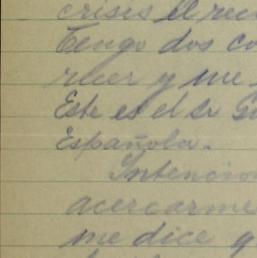 crisis el rec
Tengo dos co
recer y me
Este es el Sr G
Española.
Intencion
acercarme
me dice q